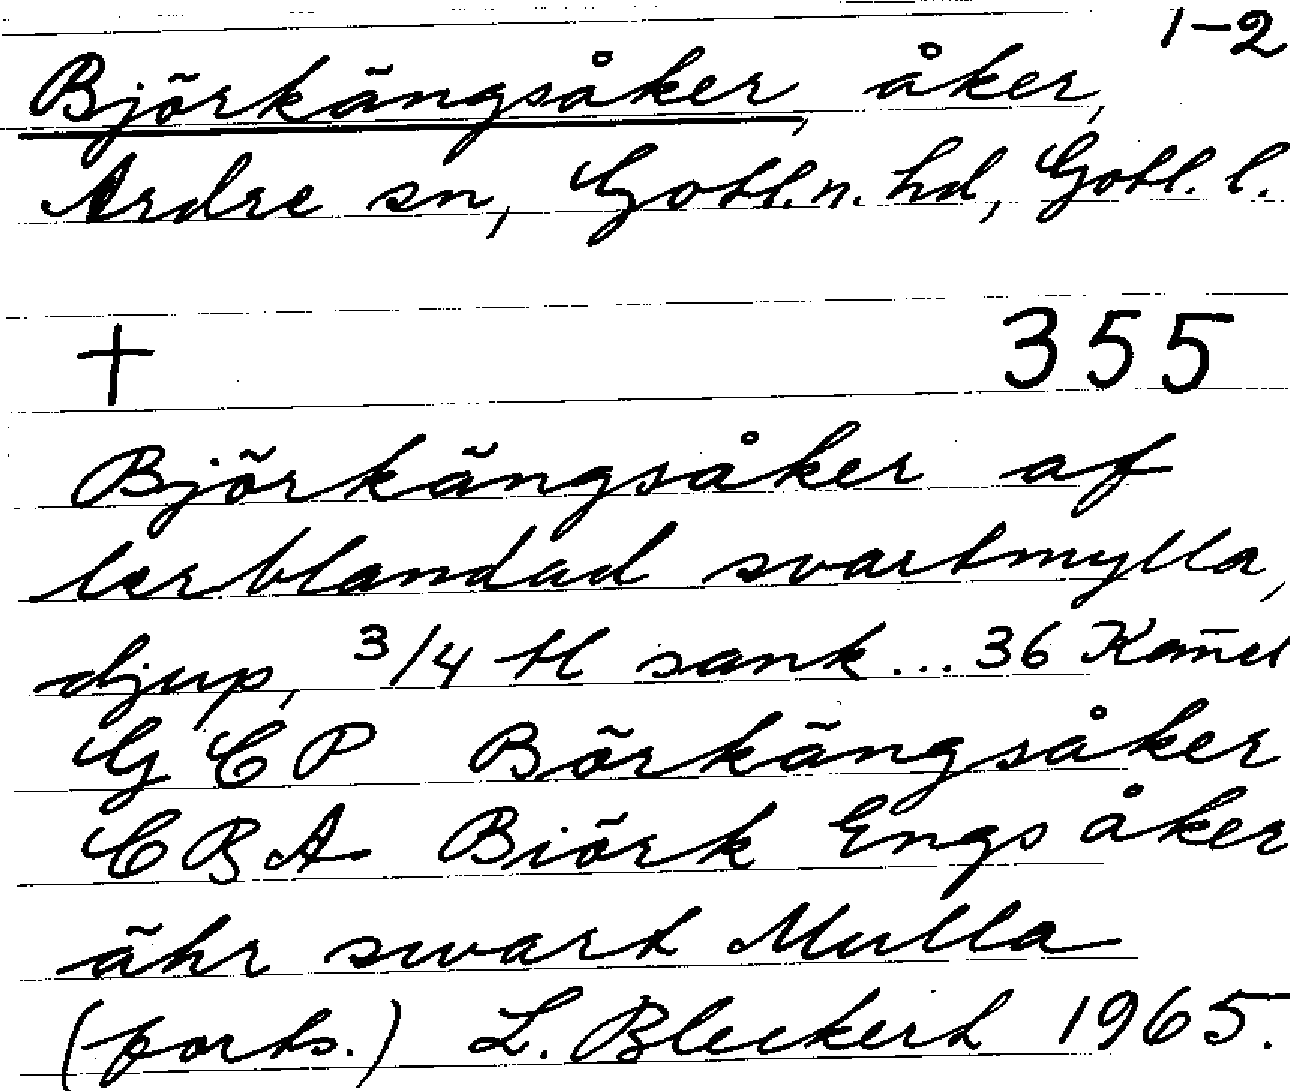 1-2
Björkängsåker, åker,
Ardre sn, Gotl. n. hd, Gotl. l.
† 355
Björkängsåker af
lerblandad svartmylla,
djup, 3/4 tl sank... 36 Kan̄el
G C P Börkängsåker
C B A Biörk Engs åker
ähr swart Mulla
(forts.) L. Bleckert 1965.